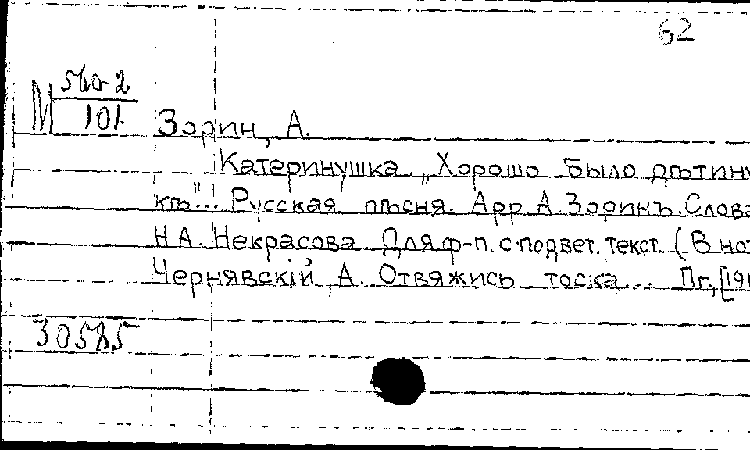 62
М 560-2
101
Зорин, А.
Катеринушка „Хорошо было дѣтину
кѣ"... Русская пѣсня. Арр. А. Зоринъ. Слова
Н.А. Некрасова. Для ф-п. с подвет. текст. (В нот
Чернявскій А. Отвяжись тоска... Пг., [191
30585